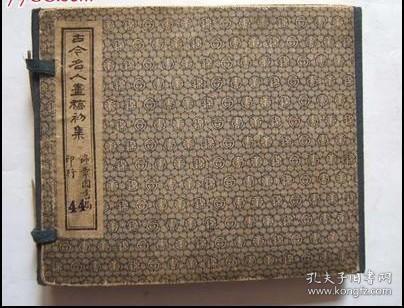 古今名人畫稿初集
錦章圖書局
印行
44
孔夫子旧书网
kongfz.com